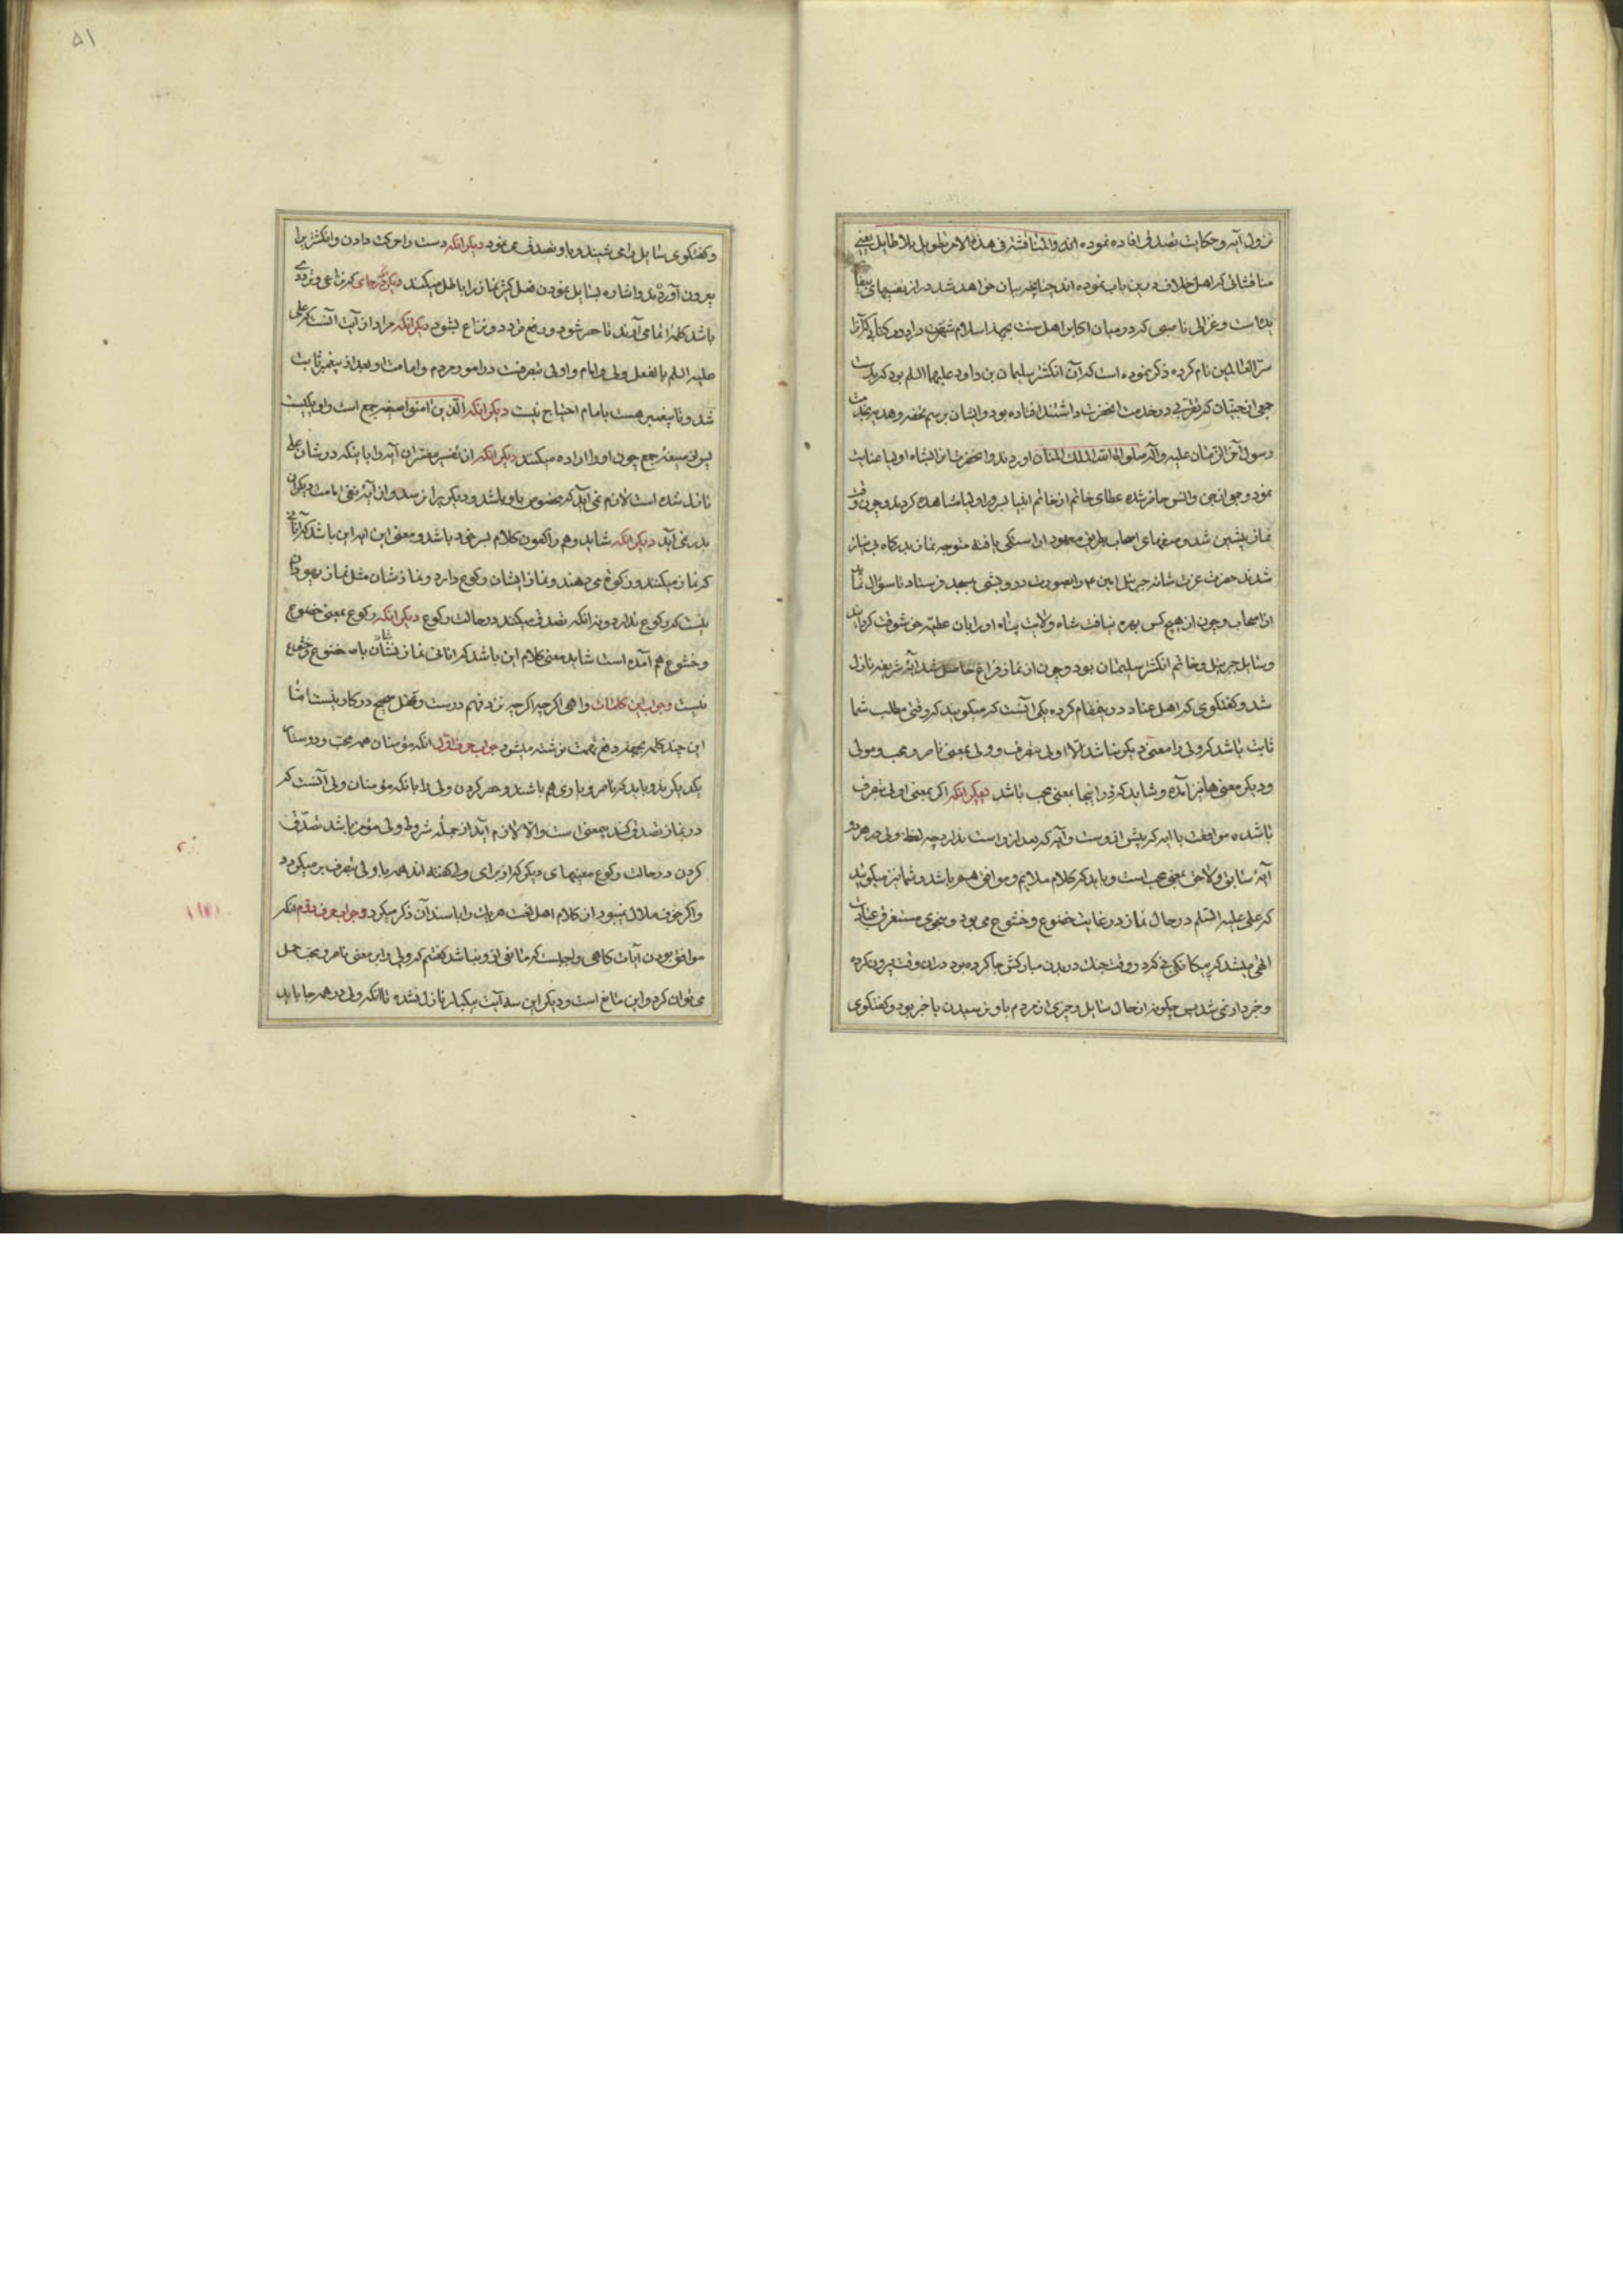 نزول آیه و حکایت تصدق افاده نموده اند والمناقشة فی هذا الامر تطویل بلا طایل یعنی
مناقشاتی که اهل خلاف درین باب نموده اند چنانچه بیان خواهد شد دراز نفسیهای بیفا
یده است و غزالی ناصبی که در میان اکابر اهل سنت بحجة اسلام شهرت دارد در کتابی که آنرا
سر العالمین نام کرده ذکر نموده است که آن انگشتر سلیمان بن داود علیهما السلم بود که بدست
جمعی از جنیان که تقربی در خدمت انحضرت داشتند افتاده بود و ایشان برسم تحفه و هدیه بخدمت
رسول آخر الزمان علیه و آله صلوات الله الملک المنان اوردند و انحضرت انرا بشاه اولیا عنایت
نمود و جوان جن و انس حاضر شده عطای خاتم از خاتم انبیا بسرور اولیا مشاهده کردند و چون وقت
نماز پیشین شد و صفهای اصحاب بطریق معهود اراستگی یافته متوجه نماز بدرگاه بی نیاز
شدند حضرت عزت شانه جبرئیل امین را بصورت درویشی بمسجد فرستاد تا سؤال نماید
از اصحاب و چون از هیچ کس بهره نیافت شاه ولایت پناه او را بان عطیه خوشوقت کردانید
و سایل جبرئیل و خاتم انگشتر سلیمان بود و چون از نماز فراغ حاصل شد آیه شریفه نازل
شد و کفتکوی که اهل عناد درینمقام کرده یکی آنست که میکویند که وقتی مطلب شما
ثابت باشد که ولی را معنی دیکر نباشد الا اولی بتصرف و ولی بمعنی ناصر و محب و مولی
و دیکر معنی ها نیز آمده و شاید که در اینجا بمعنی محب باشد دیکر انکه اکر بمعنی اولی بتصرف
باشد موافقت با ایه که پیش ازوست و آیه که بعد ازو است ندارد چه لفظ ولی در هر دو
آیه سابق و لاحق بمعنی محب است و باید که کلام ملایم و موافق هم باشد و شما نیز میکوئید
که علی علیه السلم در حال نماز در غایت خضوع و خشوع می بود و بنحوی مستغرق عنایت
الهی میشد که پیکانی که در وقت جنک در بدن مبارکش جا کرده بود دران وقت بیرون کرده
و خبردار نمی شد پس چکونه از حال سایل و چیزی از مردم باو نرسیدن با خبر بود و کفتکوی
۵۱
و کفتکوی سایل را می شنید و باو تصدق می نمود دیکر انکه دست را حرکت دادن و انکشتر را
بیرون آوردند و اشاره بسایل نمودن فعل کثیر نماز را باطل میکند دیکر که جای که نزاعی و ترددی
باشد کلمه انما می آورند تا حصر شود و رفع تردد و نزاع بشود دیکر انکه مراد از آیت آنست که علی
علیه السلم بالفعل ولی و امام و اولی بتصرفست در امور مردم و امامت او بعد از پیغمبر ثابت
شد و تا پیغمبر هست بامام احتیاج نیست دیکر انکه الذین امنوا صیغه جمع است و او یکیست
پس از صیغه جمع چون او را اراده میکنند دیکر انکه از تفسیر مفسران آیه را با ینکه در شان علی
نازل شده است لازم نمی آید که مخصوص باو باشد و دیکریرا نرسد و از آیه نفی امامت دیکران
بدر نمی آید دیکر انکه شاید وهم راکعون کلام بسر خود باشد و معنی این ایه این باشد که آنانی
که نماز میکنند و زکوة می دهند و نماز ایشان رکوع دارد و نمازشان مثل نماز یهودان
نیست که رکوع ندارد و نه انکه تصدق میکنند در حالت رکوع دیکر انکه رکوع بمعنی خضوع
و خشوع هم آمده است شاید معنی کلام این باشد که انانی نمازشان با خضوع و خشوع
نیست و جواب این کلمات واهی اکر چه اکر چه نزد فهم درست و عقل صحیح در کار نیست اما
این چند کلمه بجهة رفع تهمت نوشته میشود جواب حرف اول انکه مؤمنان همه محب و دوستان
یکدیکرند و باید که ناصر و یاوری هم باشند و حصر کردن ولی را بانکه مؤمنان ولی آنست که
در نماز تصدق کند بیمعنی است و الا لازم آید از جمله شروط ولی مؤمن باشد تصدق
کردن در حالت رکوع معنیهای دیکر که از برای ولی کفته اند همه با ولی بتصرف بر میکردد
و اکر خوف ملال نمیبود از کلام اهل لغت هر یک را با سند آن ذکر میکرد و جواب حرف دوم انکه
موافق بودن آیات کاهی واجبست که مانعی از و نباشد کفتیم که ولی را بر معنی ناصر و محب حمل
نمی توان کرد و این مانع است و دیکر این سه آیت بیکبار نازل نشده تا انکه ولی در همه جا باید